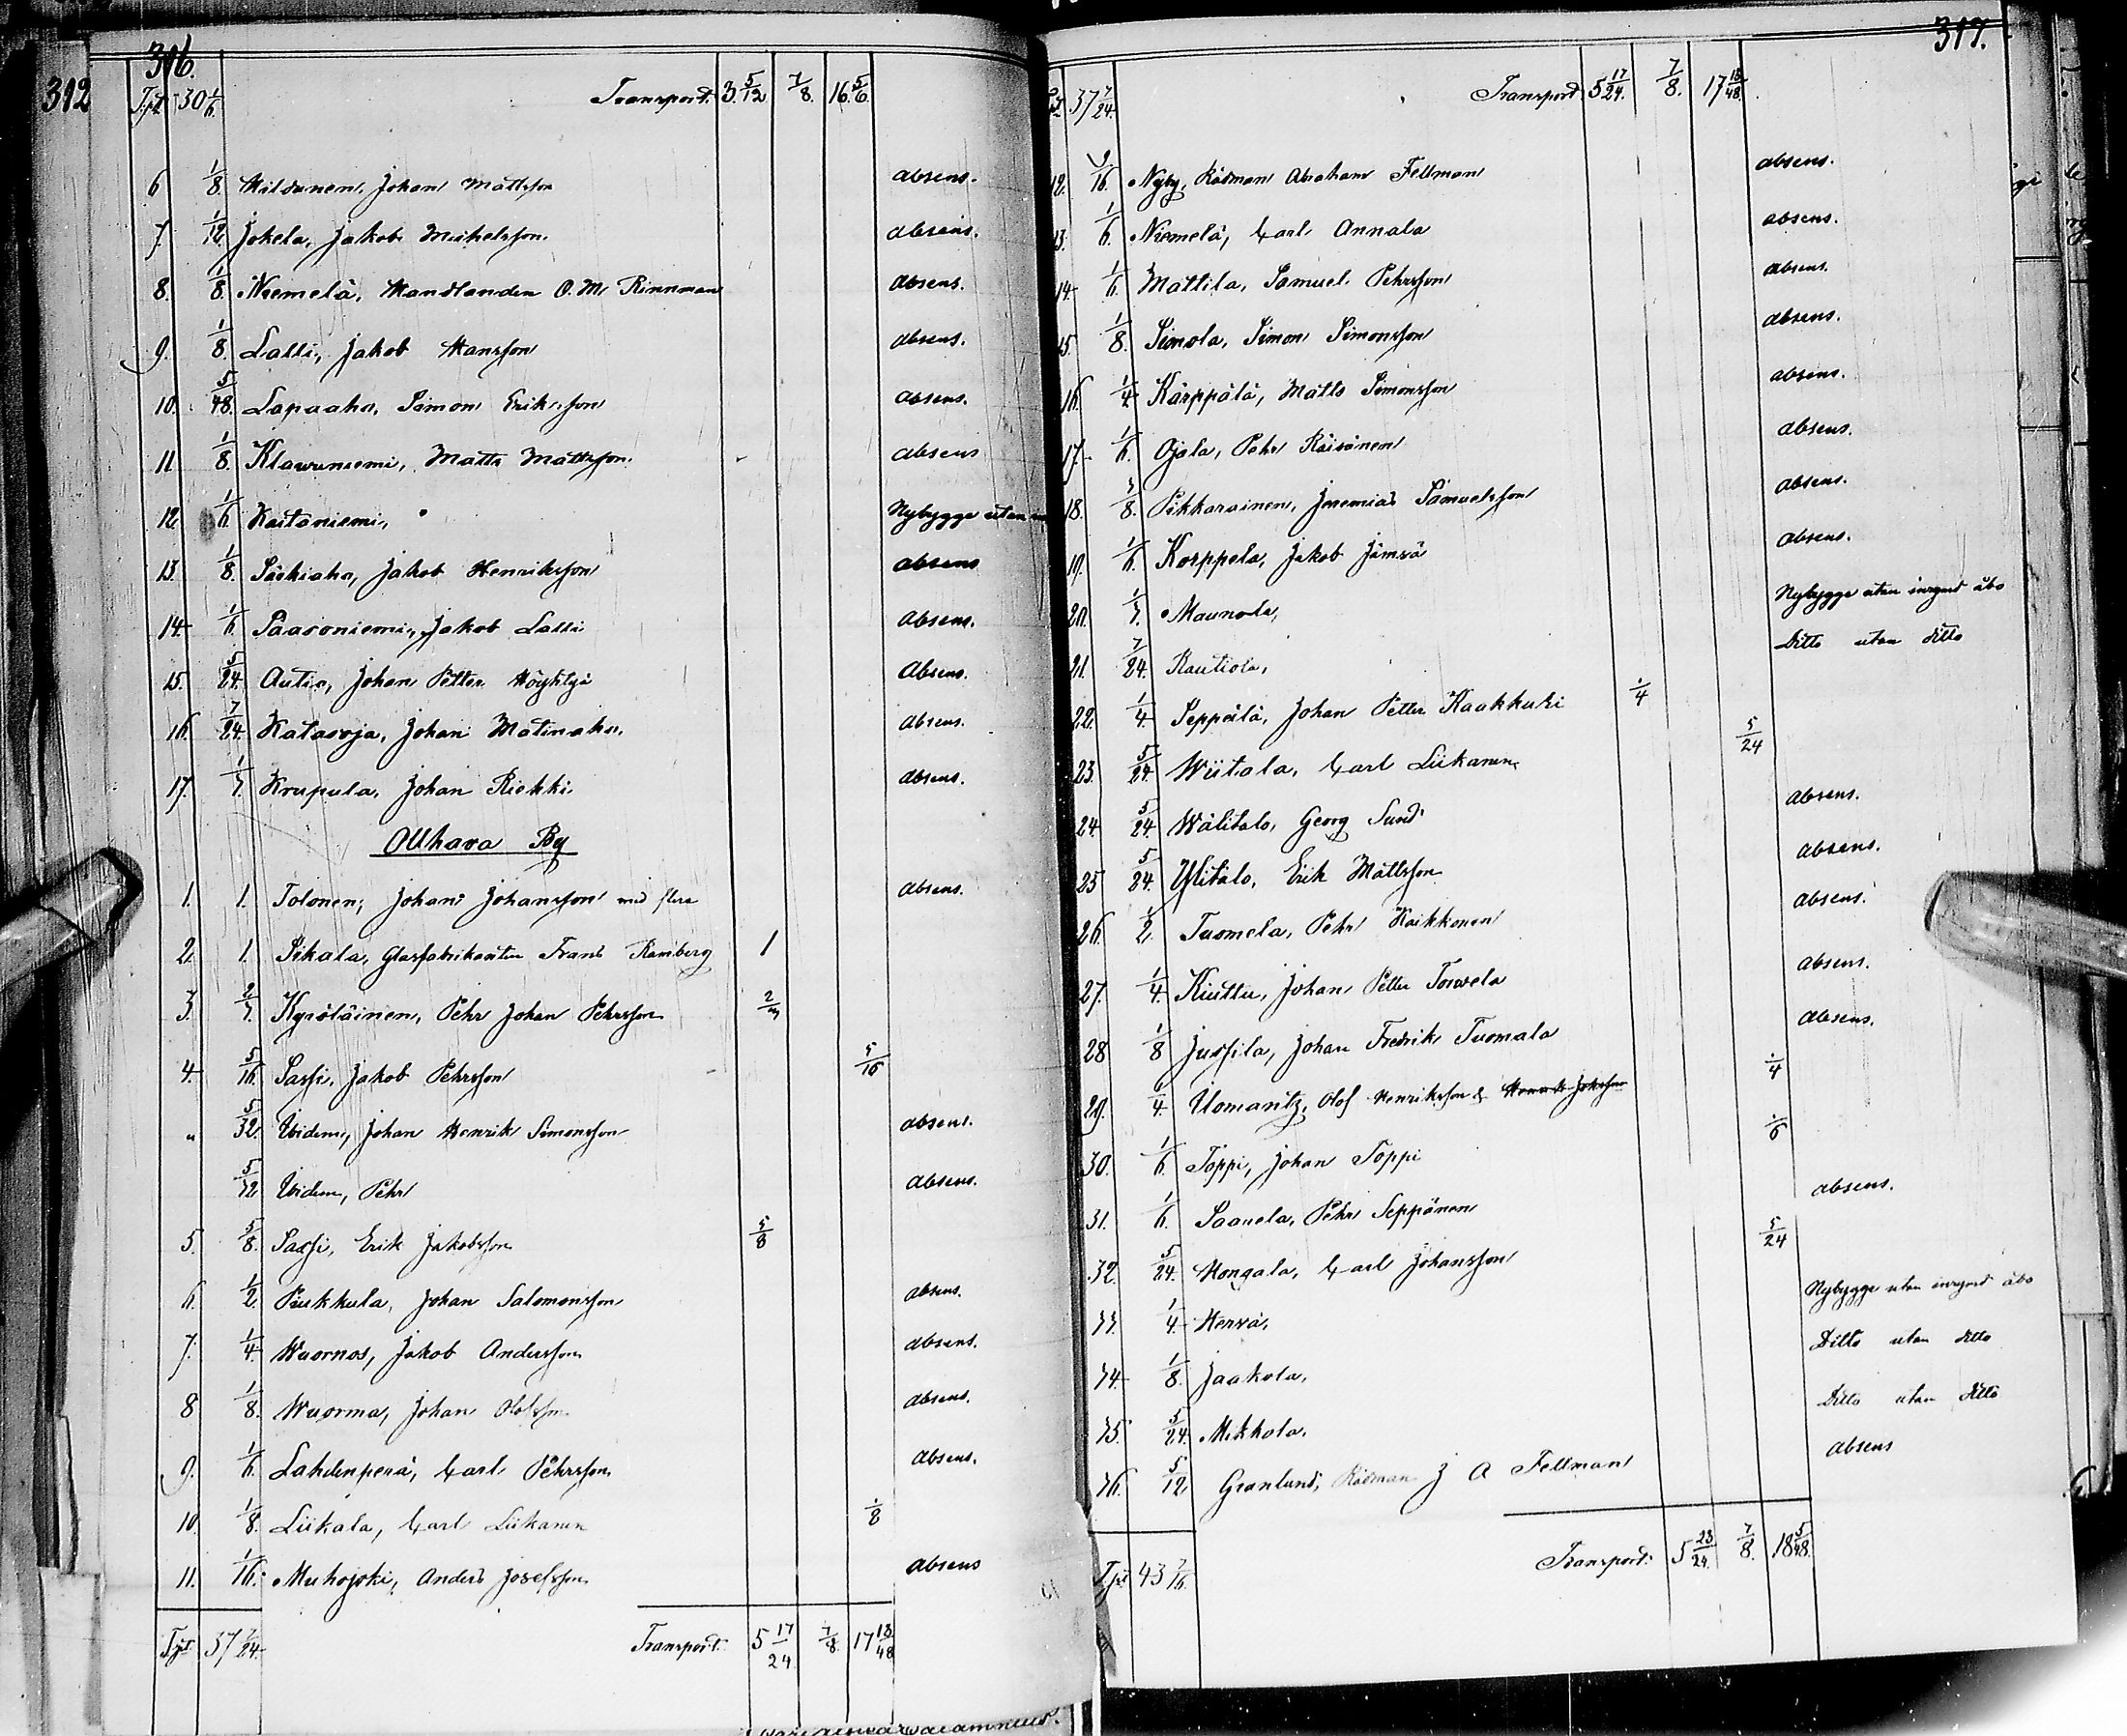 312
316.
Tspt 30 1/6. Transport. 3. 5/12 7/8. 16. 5/6.
6 1/8. Hildunen, Johan Mattsson absens.
7. 1/12 Jokela, Jakob Michelsson absens.
8. 1/8. Niemelä, Handlanden O. M. Rinnman absens.
9. 1/8. Lalli, Jakob Hansson absens.
10. 5/48. Lapuaho, Simon Eriksson absens.
11 1/8. Klawuniemi, Matts Mattsson absens
12. 1/6 Kaitaniemi, Nybygge utan
13. 1/8. Pächiaho, Jakob Henriksson absens
14. 1/6. Paasoniemi, Jakob Lalli absens.
15. 5/24. Autio, Johan Petter Höyhtyä Absens.
16. 7/24. Kataroja, Johan Matinaho. absens.
17. 1/3. Krupula, Johan Riekki absens.
Olhava By
1. 1. Tolonen, Johan Johansson med flera absens.
2. 1. Pikala, Glasfabrikanten Frans Ramberg 1
3. 2/3. Kyröläinen, Pehr Johan Pehrsson 2/3
4. 5/16. Sassi, Jakob Pehrsson 5/16
" 5/32. Ibidem, Johan Henrik Simonsson absens.
5/12 Ibidem, Pehr absens.
5. 5/8. Sassi, Erik Jakobsson 5/8
6. 1/2 Piukkula, Johan Salomonsson absens.
7. 1/4. Wuornos, Jakob Andersson absens.
8 1/8. Wuorma, Johan Olofsson absens.
9. 1/6. Lahdenperä, Carl Pehrsson absens.
10. 1/8. Liikala, Carl Liikanen 1/8
11. 1/16. Muhojoki, Anders Josefsson absens
Tspt 37 7/24. Transport. 5 17/24 7/8. 17 13/48
317.
37 7/24. Transport 5 17/24. 7/8. 17 13/48.
12. 9/16. Nyby, Rådman Abraham Fellman absens.
13. 1/6. Niemelä, Carl Annala absens.
14. 1/6. Mattila, Samuel Pehrsson absens.
15. 1/8. Simola, Simon Simonsson absens.
16. 1/4 Kärppälä, Matts Simonsson absens.
17. 1/6. Ojala, Pehr Räisänen absens.
18. 3/8. Pikkarainen, Jeremias Samuelsson absens.
19. 1/6. Korppela, Jakob Jämsä absens.
20. 1/3. Maunola, Nybygge utan insynad åbo
21. 7/24. Rautiola, Ditto utan ditto
22. 1/4. Seppälä, Johan Petter Kaakkuri 1/4
23. 5/24 Wiitala, Carl Liikanen 5/24
24 5/24. Wälitalo, Georg Sund absens.
25 5/24. Ylitalo, Erik Mattsson absens.
26. 1/2. Tuomela, Pehr Kaikkonen absens.
27. 1/4. Kiuttu, Johan Petter Torwela absens.
28 1/8 Jussila, Johan Fredrik Tuomala absens.
29. 1/4. Ilomantz, Olof Henriksson & 1/4
30. 1/6. Toppi, Johan Toppi 1/6
31. 1/6. Saauela, Pehr Seppänen absens.
32. 5/24. Hongala, Carl Johansson 5/24
33. 1/4. Hervä, Nybygge utan insynad åbo
34. 1/8. Jaakola, Ditto utan ditto
35. 5/24. Mikkola, Ditto utan ditto
36. 5/12 Granlund, Rådman J A Fellman absens
Tspt 43 7/16. Transport: 5 23/24. 7/8. 18 5/48.